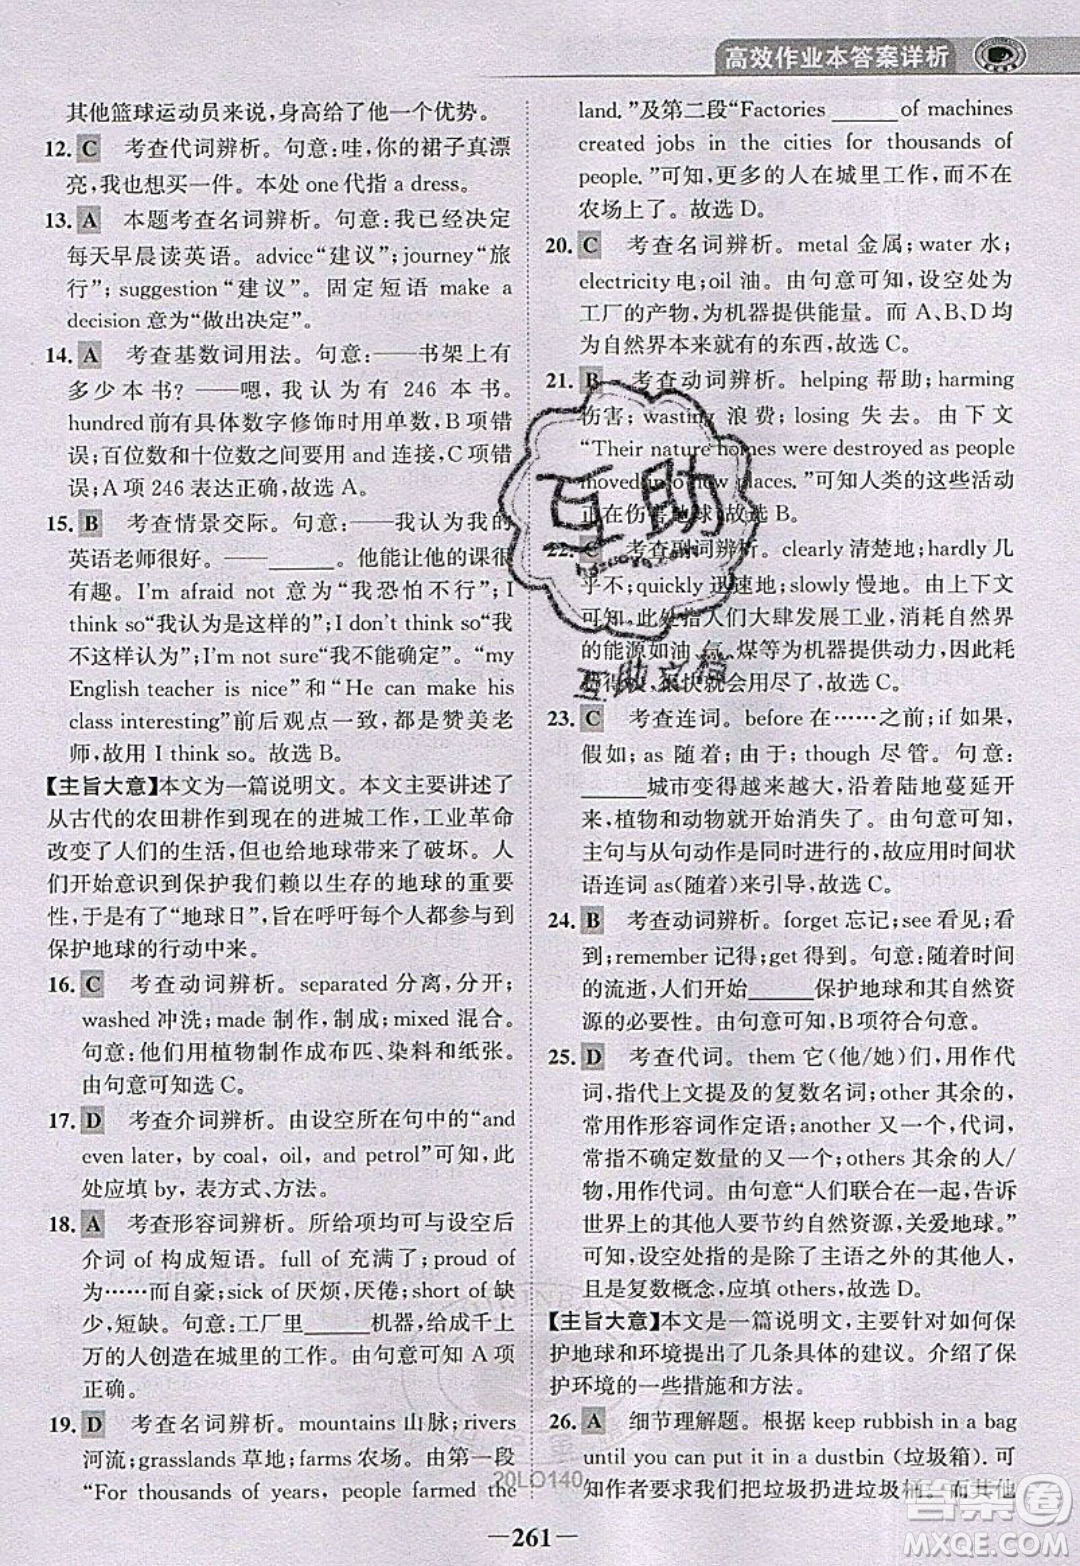 高效作业本答案详析
其他篮球运动员来说,身高给了他一个优势。
12. C 考查代词辨析。句意:哇,你的裙子真漂
亮,我也想买一件。本处 one代指 a dress。
13. A 本题考查名词辨析。句意:我已经决定
每天早晨读英语。advice“建议”;journey“旅
行”;suggestion“建议”。固定短语 make a
decision 意为“做出决定”。
14. A 考查基数词用法。句意:——书架上有
多少本书?——嗯,我认为有 246 本书。
hundred前有具体数字修饰时用单数,B项错
误;百位数和十位数之间要用 and连接,C项错
误;A项 246 表达正确,故选 A。
15. B 考查情景交际。句意:——我认为我的
英语老师很好。——______。他能让他的课很
有趣。I'm afraid not 意为“我恐怕不行”;I
think so“我认为是这样的”;I don't think so“我
不这样认为”;I'm not sure“我不能确定”。“my
English teacher is nice”和“He can make his
class interesting”前后观点一致,都是赞美老
师,故用 I think so。故选 B。
【主旨大意】本文为一篇说明文。本文主要讲述了
从古代的农田耕作到现在的进城工作,工业革命
改变了人们的生活,但也给地球带来了破坏。人
们开始意识到保护我们赖以生存的地球的重要
性,于是有了“地球日”,旨在呼吁每个人都参与到
保护地球的行动中来。
16. C 考查动词辨析。separated 分离,分开;
washed 冲洗;made 制作,制成;mixed 混合。
句意:他们用植物制作成布匹、染料和纸张。
由句意可知选 C。
17. D 考查介词辨析。由设空所在句中的“and
even later, by coal, oil, and petrol”可知,此
处应填 by,表方式、方法。
18. A 考查形容词辨析。所给项均可与设空后
介词 of 构成短语。full of 充满了;proud of
为……而自豪;sick of 厌烦,厌倦;short of 缺
少,短缺。句意:工厂里______机器,给成千上
万的人创造在城里的工作。由句意可知 A 项
正确。
19. D 考查名词辨析。mountains山脉;rivers
河流;grasslands 草地;farms 农场。由第一段
“For thousands of years, people farmed the
land.”及第二段“Factories ______ of machines
created jobs in the cities for thousands of
people.”可知,更多的人在城里工作,而不在
农场上了。故选 D。
20. C 考查名词辨析。metal 金属;water 水;
electricity电;oil 油。由句意可知,设空处为
工厂的产物,为机器提供能量。而 A、B、D均
为自然界本来就有的东西,故选 C。
21. B 考查动词辨析。helping 帮助;harming
伤害;wasting 浪费;losing 失去。由下文
“Their nature homes were destroyed as people
moved into new places.”可知人类的这些活动
正在伤害地球,故选 B。
22. C 考查副词辨析。clearly 清楚地;hardly 几
乎不;quickly 迅速地;slowly 慢地。由上下文
可知,此处指人们大肆发展工业,消耗自然界
的能源如油、气、煤等为机器提供动力,因此耗
得很快,很快就会用尽了,故选 C。
23. C 考查连词。before 在……之前;if 如果,
假如;as 随着;由于;though 尽管。句意:
______城市变得越来越大,沿着陆地蔓延开
来,植物和动物就开始消失了。由句意可知,
主句与从句动作是同时进行的,故应用时间状
语连词 as(随着)来引导,故选 C。
24. B 考查动词辨析。forget 忘记;see 看见;看
到;remember 记得;get 得到。句意:随着时间
的流逝,人们开始______保护地球和其自然资
源的必要性。由句意可知,B项符合句意。
25. D 考查代词。them 它(他/她)们,用作代
词,指代上文提及的复数名词;other 其他的,
常用作形容词作定语;another 又一个,代词,
常指不确定数量的又一个;others 其他的人/
物,用作代词。由句意“人们联合在一起,告诉
世界上______的人们要节约自然资源,关爱地球。”
可知,设空处指的是除了主语之外的其他人,
且是复数概念,应填 others,故选 D。
【主旨大意】本文为一篇说明文,主要针对如何保
护地球和环境提出了几条具体的建议。介绍了保
护环境的一些措施和方法。
26. A 细节理解题。根据 keep rubbish in a bag
until you can put it in a dustbin (垃圾箱). 可
知作者要求我们把垃圾扔进垃圾桶。而其他
互助
互助文档
20LO140
答案圈
MXQE.COM
261